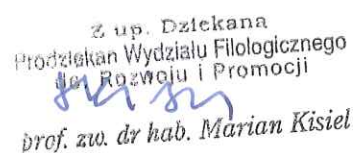 Z up. Dziekana
Prodziekan Wydziału Filologicznego
ds. Rozwoju i Promocji
prof. zw. dr hab. Marian Kisiel